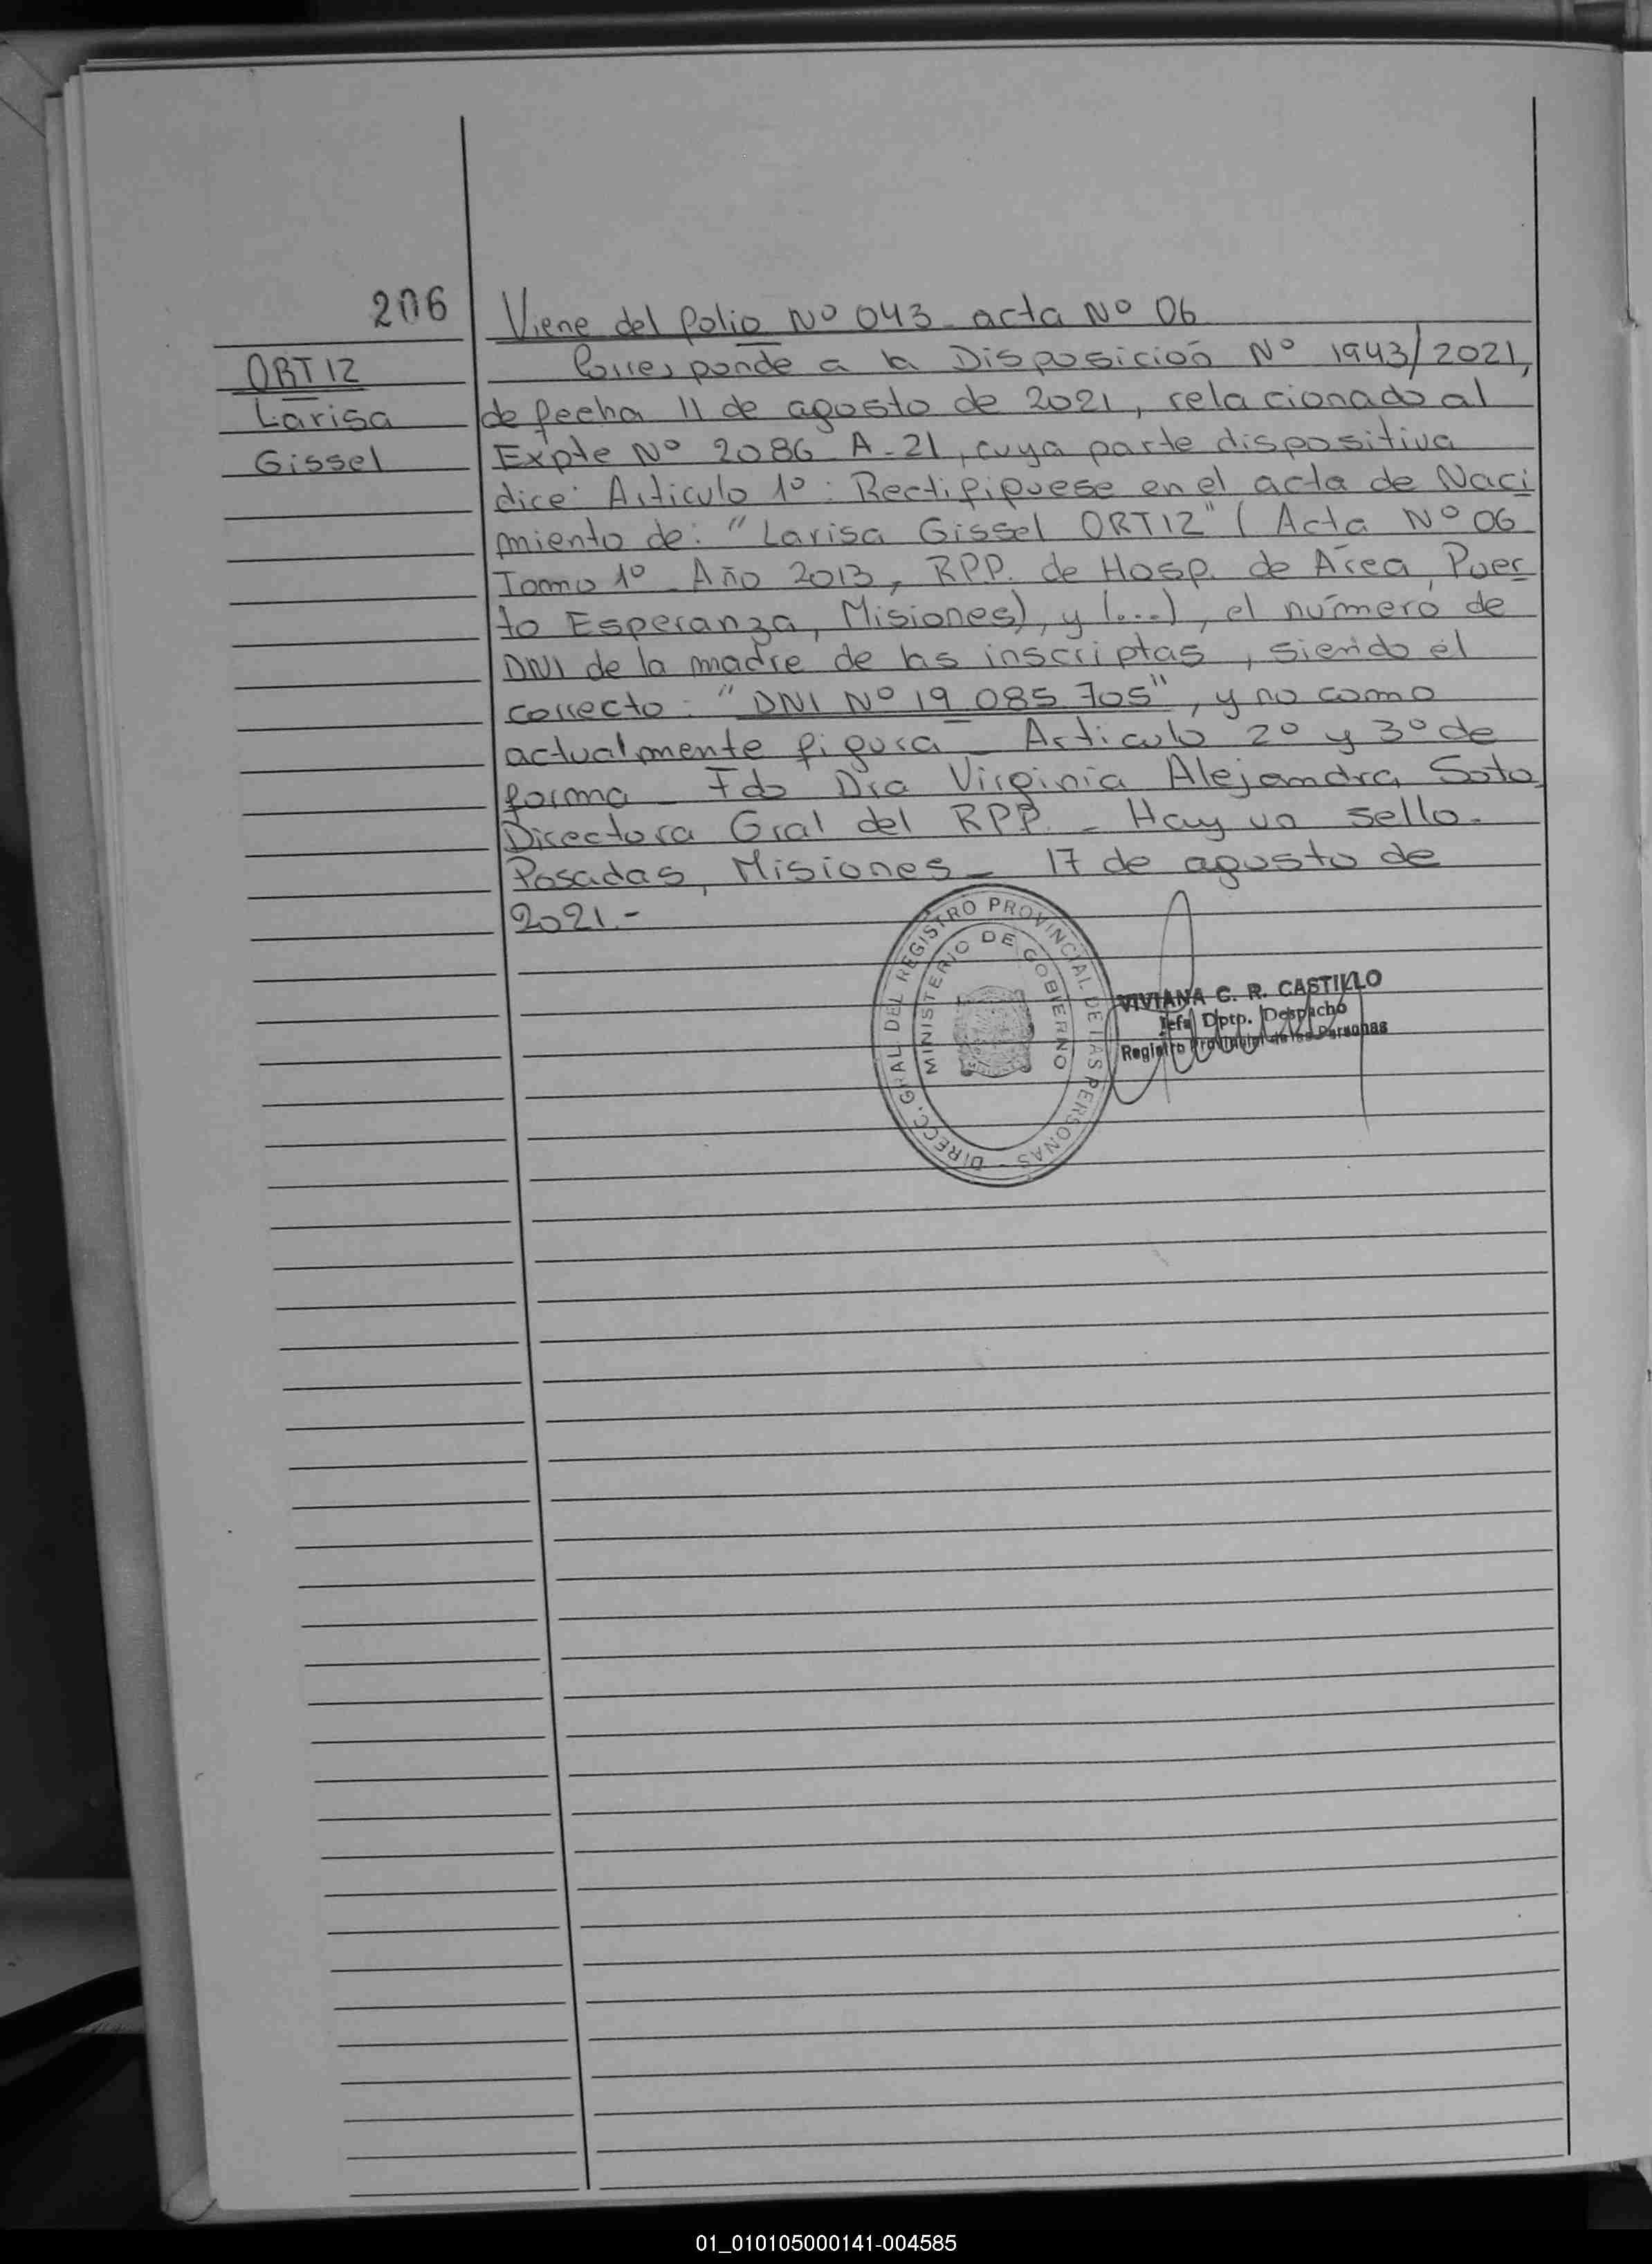 206
ORTIZ
Larisa
Gissel
Viene del folio Nº 043 - acta Nº 06
Corresponde a la Disposición Nº 1943/2021,
de fecha 11 de agosto de 2021, relacionado al
Expte Nº 2086 - A - 21, cuya parte dispositiva
dice: Articulo 1º: Rectifiquese en el acta de Naci
miento de: "Larisa Gissel ORTIZ" (Acta Nº 06
Tomo 1º - Año 2013, RPP. de Hosp. de Área, Puer
to Esperanza, Misiones), y (...), el número de
DNI de la madre de las inscriptas, siendo el
correcto: "DNI Nº 19.085.705", y no como
actualmente figura - Articulo 2º y 3º de
forma - Fdo Dra Virginia Alejandra Soto
Directora Gral del RPP. - Hay un sello.
Posadas, Misiones - 17 de agosto de
2021.-
DIRECC. GRAL. DEL REGISTRO PROVINCIAL DE LAS PERSONAS -
MINISTERIO DE GOBIERNO
VIVIANA C. R. CASTILLO
Jefa Dpto. Despacho
Registro Provincial de las Personas
01_010105000141-004585